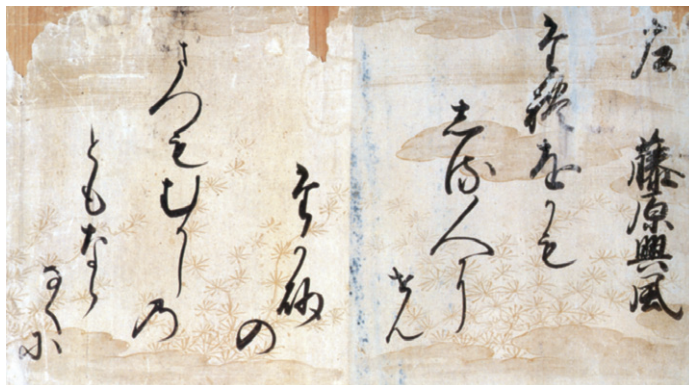 藤原興風
たれをかも
しる人に
せん
たか砂の
まつもむかし乃
ともなら
なくに